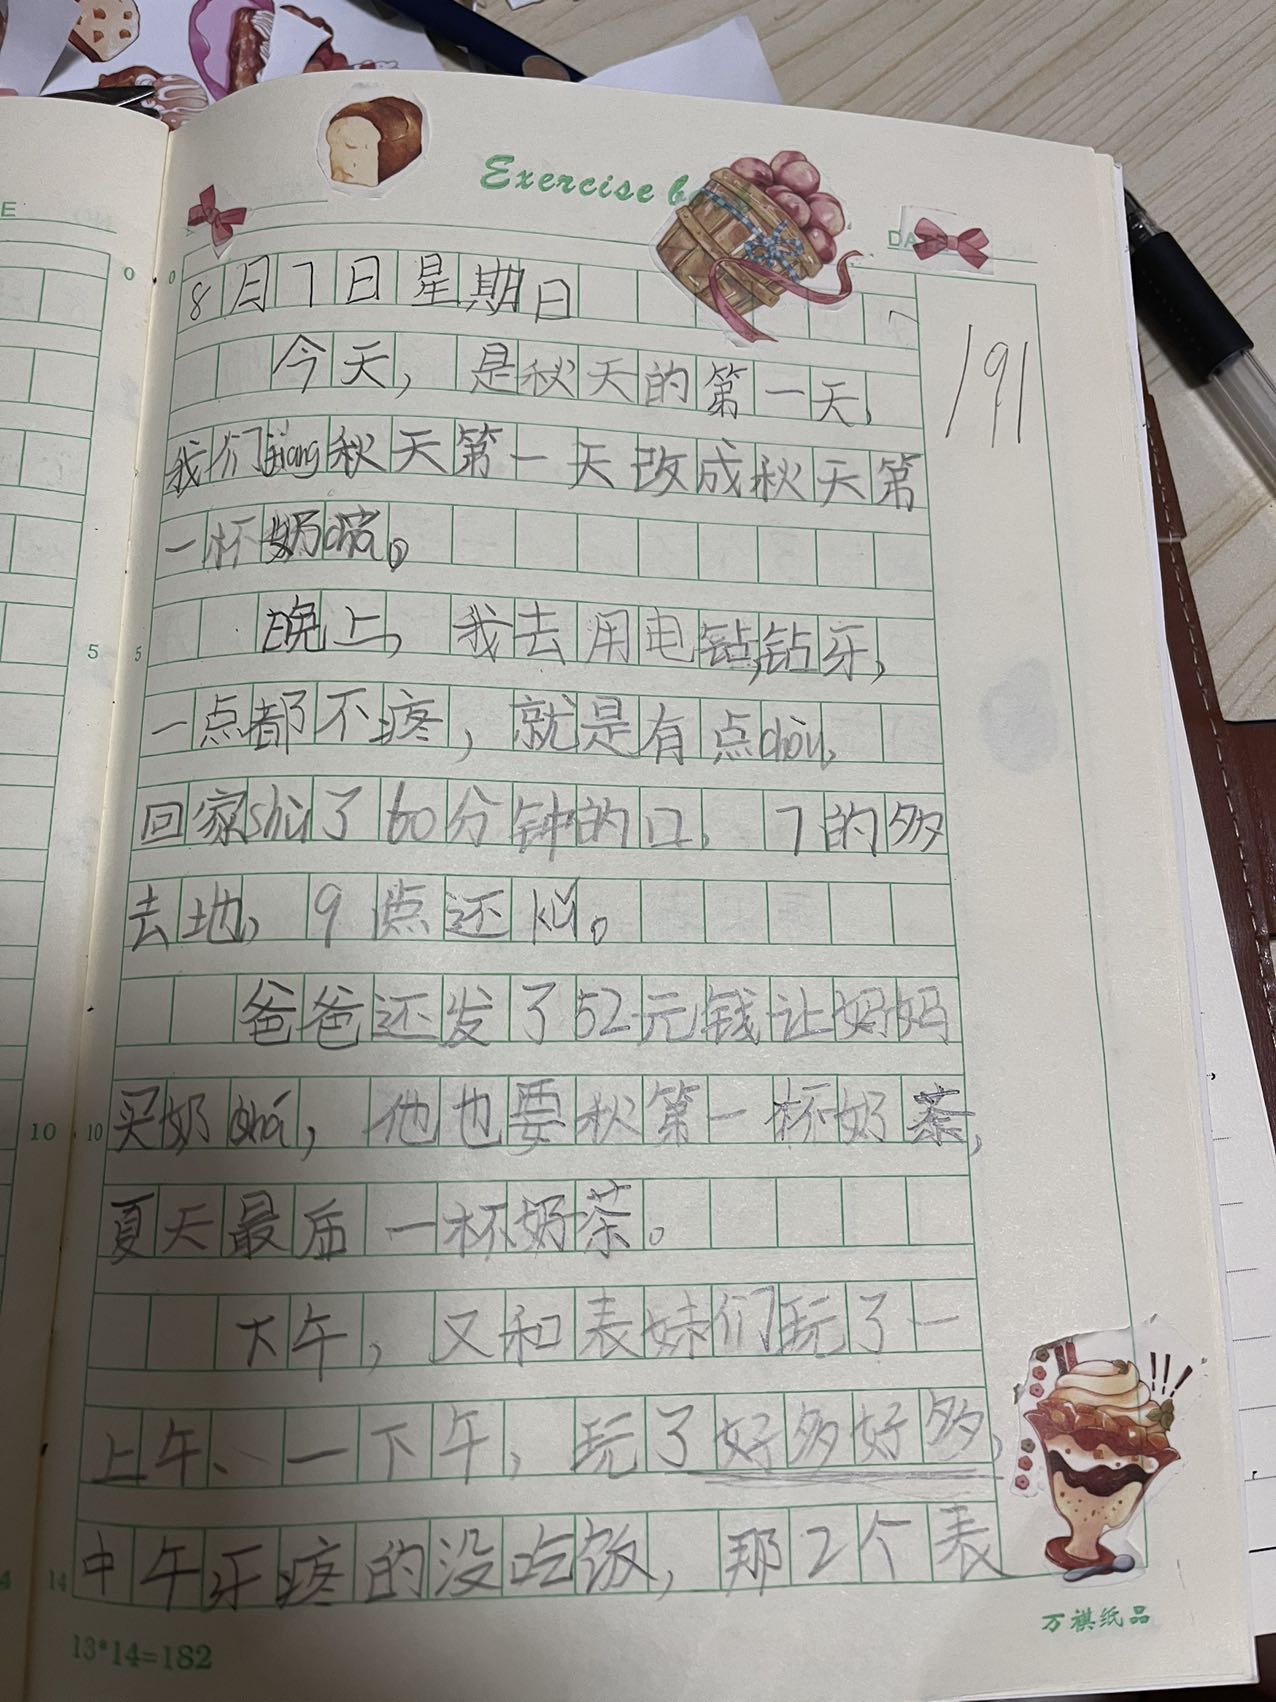 E
Exercise b
DA
8月7日星期日
191
今天，是秋天的第一天，
我们jiang秋天第一天改成秋天第
一杯奶chá。
晚上，我去用电钻，钻牙，
一点都不疼，就是有点chòu，
回家shù了60分钟的口，7的多
去地，9点还kū。
爸爸还发了52元钱让妈妈
买奶chá，他也要秋第一杯奶茶，
夏天最后一杯奶茶。
大午，又和表妹们玩了一
上午、一下午，玩了好多好多，
中午牙疼的没吃饭，那2个表
0
0
5
5
10
10
4
14
13*14=182
万祺纸品